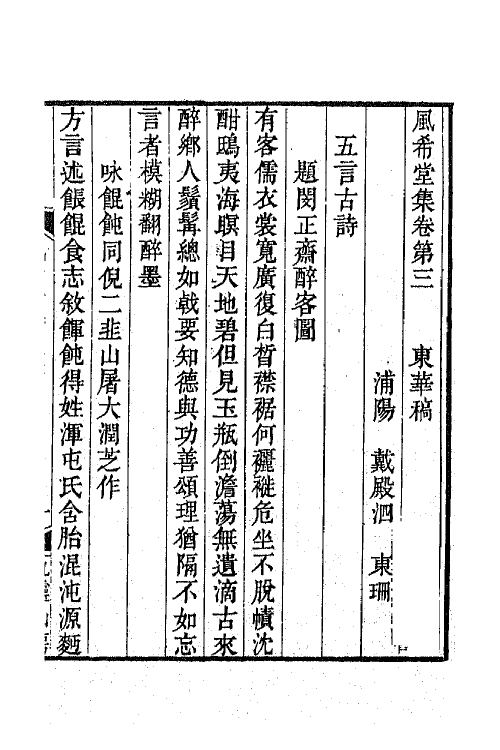 風希堂集卷第三　　東華稿
浦陽　戴殿泗　東珊
五言古詩
題閔正齋醉客圖
有客儒衣裳寬廣復白皙襟裾何襹褷危坐不脫幘沈
酣鴟夷海瞑目天地碧但見玉瓶倒澹蕩無遺滴古來
醉鄉人鬚髯總如戟要知德與功善頌理猶隔不如忘
言者模糊翻醉墨
咏餛飩同倪二韭山屠大潤芝作
方言述餦餛食志敘餫飩得姓渾屯氏含胎混沌源麵